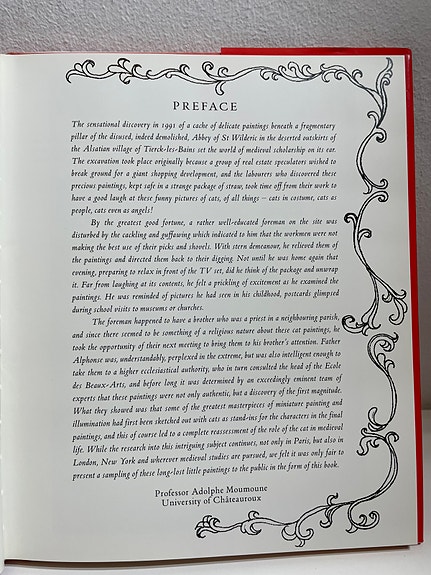 PREFACE
The sensational discovery in 1991 of a cache of delicate paintings beneath a fragmentary
pillar of the disused, indeed demolished, Abbey of St Wilderic in the deserted outskirts of
the Alsatian village of Tierck-les-Bains set the world of medieval scholarship on its ear.
The excavation took place originally because a group of real estate speculators wished to
break ground for a giant shopping development, and the labourers who discovered these
precious paintings, kept safe in a strange package of straw, took time off from their work to
have a good laugh at these funny pictures of cats, of all things – cats in costume, cats as
people, cats even as angels!
By the greatest good fortune, a rather well-educated foreman on the site was
disturbed by the cackling and guffawing which indicated to him that the workmen were not
making the best use of their picks and shovels. With stern demeanour, he relieved them of
the paintings and directed them back to their digging. Not until he was home again that
evening, preparing to relax in front of the TV set, did he think of the package and unwrap
it. Far from laughing at its contents, he felt a prickling of excitement as he examined the
paintings. He was reminded of pictures he had seen in his childhood, postcards glimpsed
during school visits to museums or churches.
The foreman happened to have a brother who was a priest in a neighbouring parish,
and since there seemed to be something of a religious nature about these cat paintings, he
took the opportunity of their next meeting to bring them to his brother's attention. Father
Alphonse was, understandably, perplexed in the extreme, but was also intelligent enough to
take them to a higher ecclesiastical authority, who in turn consulted the head of the Ecole
des Beaux-Arts, and before long it was determined by an exceedingly eminent team of
experts that these paintings were not only authentic, but a discovery of the first magnitude.
What they showed was that some of the greatest masterpieces of miniature painting and
illumination had first been sketched out with cats as stand-ins for the characters in the final
paintings, and this of course led to a complete reassessment of the role of the cat in medieval
life. While the research into this intriguing subject continues, not only in Paris, but also in
London, New York and wherever medieval studies are pursued, we felt it was only fair to
present a sampling of these long-lost little paintings to the public in the form of this book.
Professor Adolphe Moumoune
University of Châteauroux